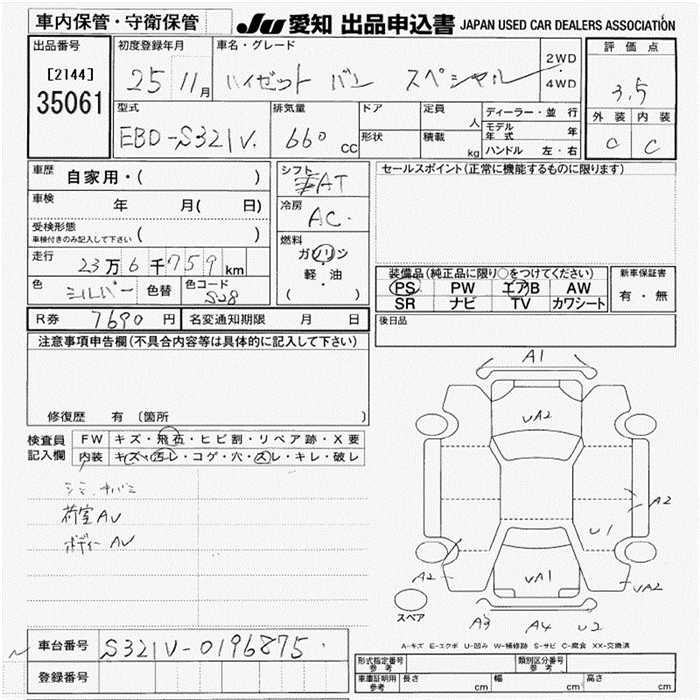 車内保管・守衛保管
JU 愛知 出品申込書 JAPAN USED CAR DEALERS ASSOCIATION
出品番号 初度登録年月 車名・グレード 2WD・4WD 評価点
[2144] 35061 25 11月 ハイゼット バン スペシャル 3.5
型式 排気量 ドア 定員 人 ディーラー・並行 外装 内装
EBD-S321V. 660 cc 形状 積載 kg モデル年式 年 C C
ハンドル 左・右
車歴 自家用・( ) シフト AT セールスポイント(正常に機能するものに限ります)
車検 年 月( 日) 冷房 AC
受検形態 車検付きのみ記入して下さい ( )
燃料 ガソリン・軽・油 ( )
走行 23万6千759km
装備品(純正品に限り○をつけてください) 新車保証書
色 シルバー 色替 色コード S28
PS PW エアB AW 有・無
SR ナビ TV カワシート
R券 7690円 名変通知期限 月 日 後日品
注意事項申告欄(不具合内容等は具体的に記入して下さい)
修復歴 有 〔箇所
検査員記入欄 FW キズ・飛石・ヒビ割・リペア跡・X要
内装 キズ・汚レ・コゲ・穴・スレ・キレ・破レ
荷室AU
ボディーAU
A1
UA2
A2
U1
A2 UA1 UA2
スペア A3 A4 U2
A-キズ E-エクボ U-凹み W-補修跡 S-サビ C-腐食 XX-交換済
車台番号 S321V-0196875
登録番号
形式指定番号 参考 類別区分番号 参考
車庫証明用 参考 長さ cm 幅 cm 高さ cm